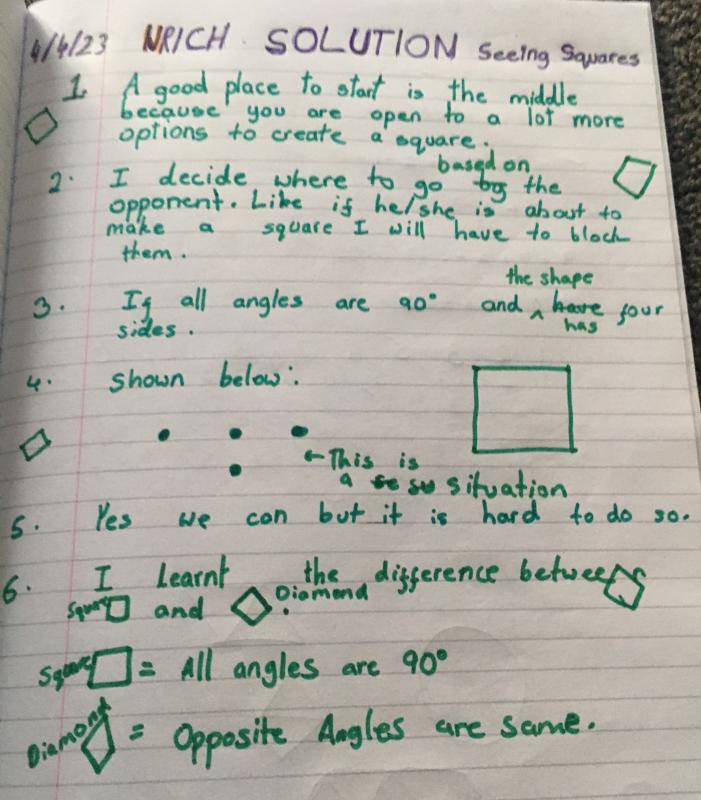 4/4/23 NRICH SOLUTION Seeing Squares
1. A good place to start is the middle
because you are open to a lot more
options to create a square.
based on
2. I decide where to go by the
opponent. Like if he/she is about to
make a square I will have to block
them.
the shape
3. If all angles are 90° and ^ have four
has
sides.
4. Shown below:
←This is
a situation
5. Yes we can but it is hard to do so.
6. I Learnt the difference between
Square and Diamond.
Square = All angles are 90°
Diamond = Opposite Angles are same.